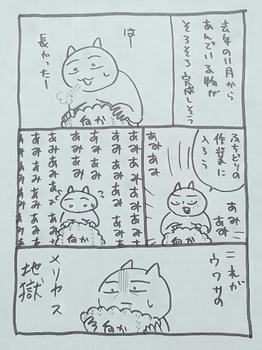 去年の11月から
あんでいる物が
そろそろ完成しそう
はー
長かったー
ねか
ふちどりの
作業に
入ろう
あみあみ
あみあみ
ねか
あみあみあみあみ
あみあみあみあみ
あみあみあみ
あみあみあみ
あみあみあみ
あみあみあみあみ
ねか
これが
ウワサの
メリヤス
地獄
ねか